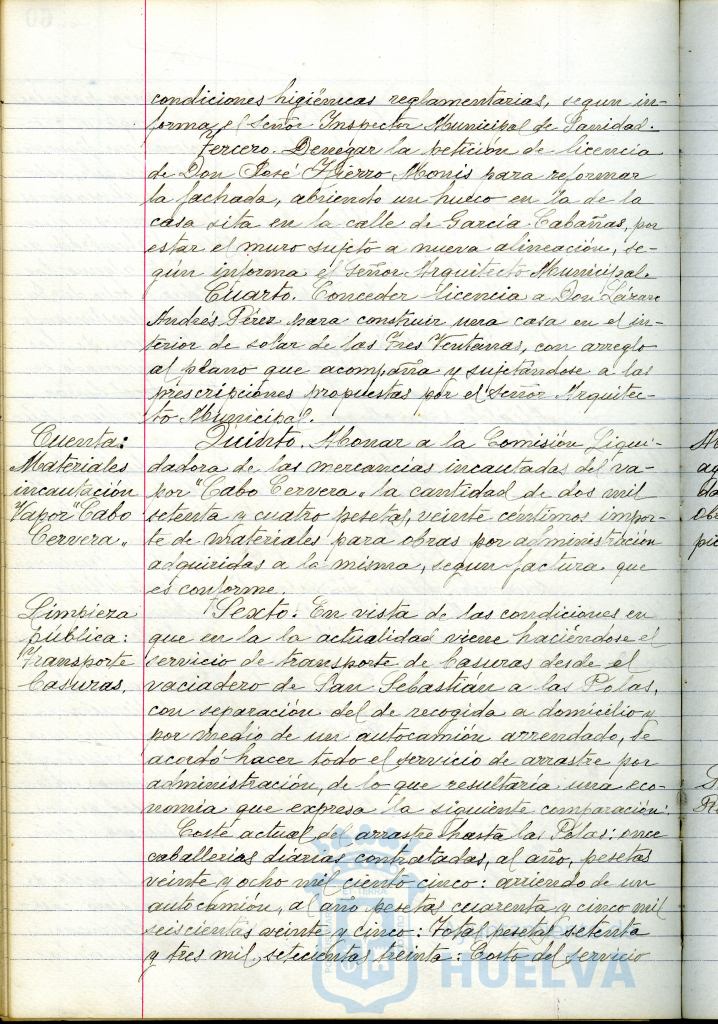 condiciones higiénicas reglamentarias, segun in-
forma el Señor Inspector Municipal de Sanidad.
Tercero. Denegar la petición de licencia
de Don José Hierro Monis para reformar
la fachada, abriendo un hueco en la de la
casa sita en la calle de García Cabañas, por
estar el muro sujeto a nueva alineación, se-
gún informa el Señor Arquitecto Municipal.
Cuarto. Conceder licencia a Don Lázaro
Andrés Pérez para construir una casa en el in-
terior de solar de las Tres Ventanas, con arreglo
al plano que acompaña y sujetándose a las
prescripciones propuestas por el Señor Arquitec-
to Municipal.
Cuenta:
Materiales
incautación
Vapor "Cabo
Cervera"
Quinto. Abonar a la Comisión Liqui-
dadora de las mercancías incautadas del va-
por "Cabo Cervera" la cantidad de dos mil
setenta y cuatro pesetas, veinte céntimos impor-
te de materiales para obras por administración
adquiridas a la misma, segun factura que
es conforme.
Limpieza
pública:
Transporte
basuras.
Sexto: En vista de las condiciones en
que en la la actualidad viene haciéndose el
servicio de transporte de basuras desde el
vaciadero de San Sebastián a las Polas,
con separación del de recogida a domicilio y
por medio de un autocamión arrendado, se
acordó hacer todo el servicio de arrastre por
administración, de lo que resultaría una eco-
nomía que expresa la siguiente comparación:
Coste actual del arrastre hasta las Polas: once
caballerias diarias contratadas, al año, pesetas
veinte y ocho mil ciento cinco: arriendo de un
autocamión, al año pesetas cuarenta y cinco mil
seiscientas veinte y cinco: Total pesetas setenta
y tres mil setecientas treinta: Costo del servicio
HUELVA